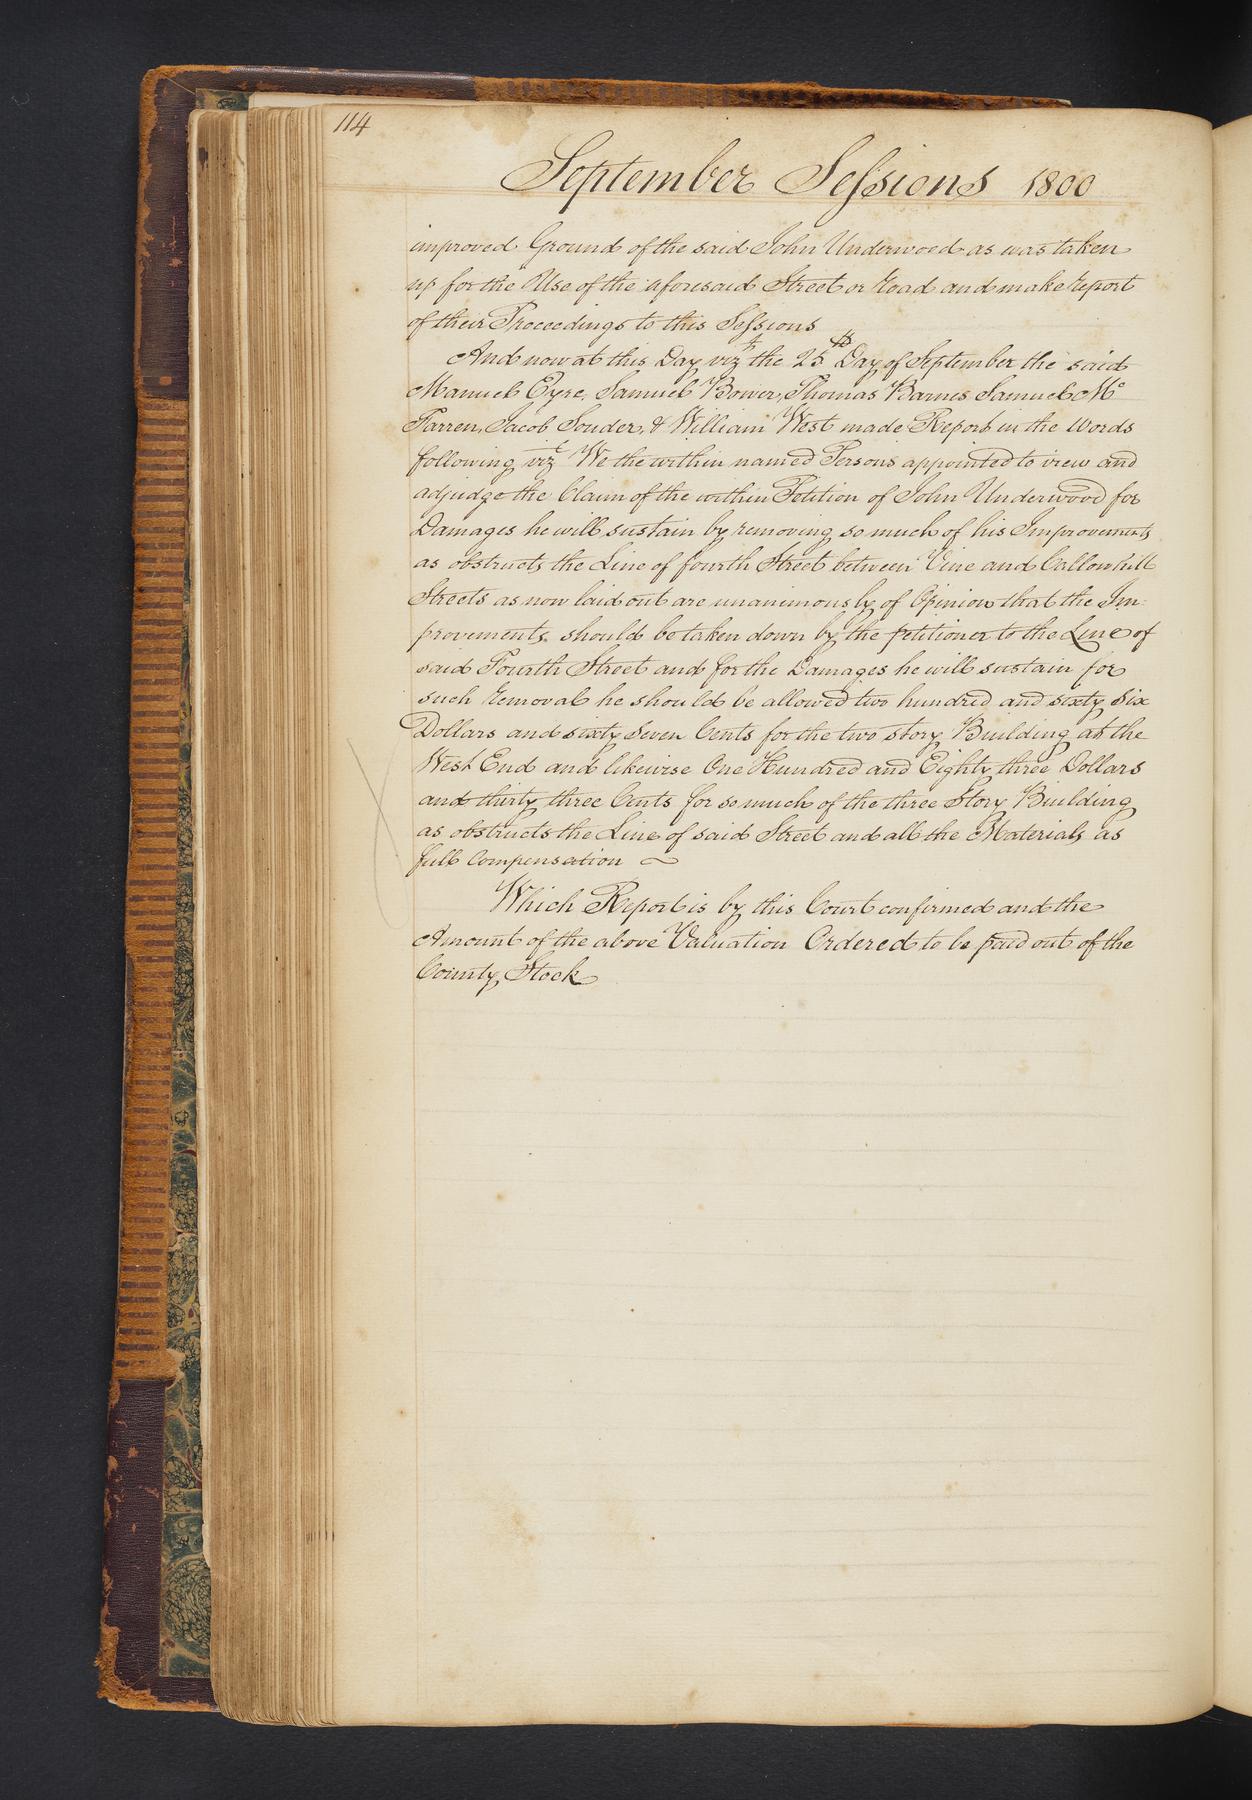 114
September Sessions 1800
improved Ground of the said John Underwood as was taken
up for the Use of the aforesaid Street or Road and make report
of their Proceedings to this Sessions
And now at this Day vizt the 25th Day of September the said
Manuel Eyre, Samuel Bower, Thomas Barnes Samuel Mc
Farren, Jacob Souder, & William West made Report in the Words
following vizt We the within named Persons appointed to view and
adjudge the Claim of the within Petition of John Underwood for
Damages he will sustain by removing so much of his Improvements
as obstructs the Line of fourth Street between Vine and Callowhill
Streets as now laid out are unanimously of Opinion that the Im-
provements should be taken down by the petitioner to the Line of
said Fourth Street and for the Damages he will sustain for
such removal he should be allowed two hundred and sixty six
Dollars and sixty seven Cents for the two story Building at the
West End and likewise One Hundred and Eighty three Dollars
and thirty three Cents for so much of the three Story Building
as obstructs the Line of said Street and all the Materials as
full Compensation ~
Which Report is by this Court confirmed and the
Amount of the above Valuation Ordered to be paid out of the
County Stock